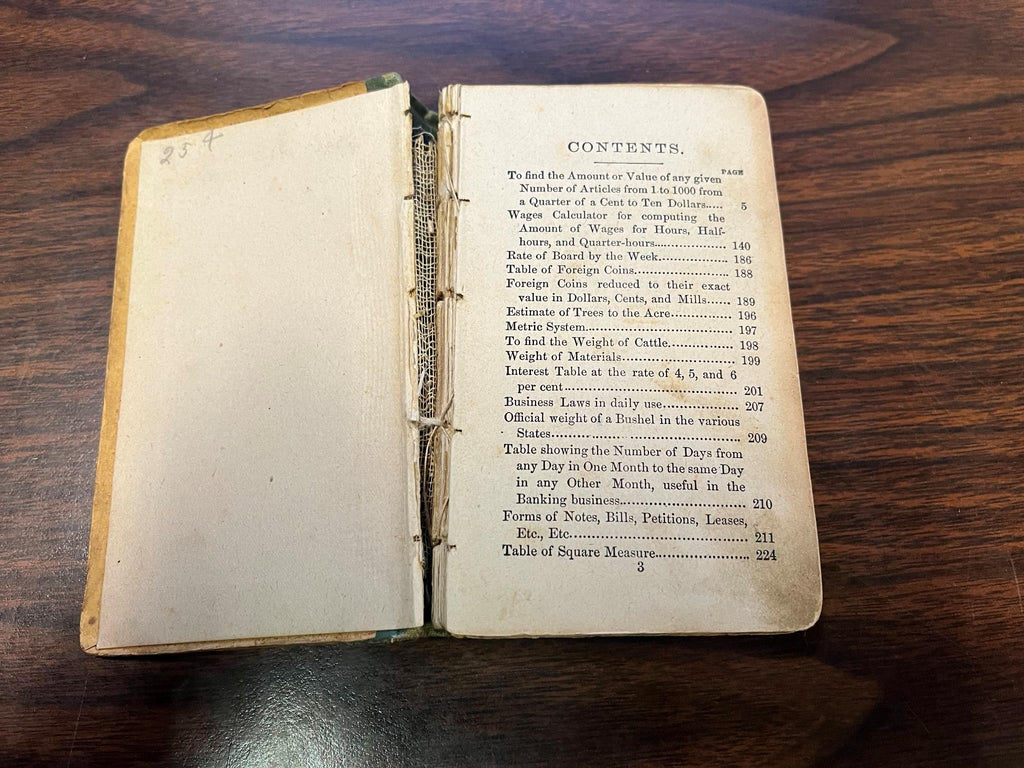 25 4
CONTENTS.
PAGE
To find the Amount or Value of any given
Number of Articles from 1 to 1000 from
a Quarter of a Cent to Ten Dollars..... 5
Wages Calculator for computing the
Amount of Wages for Hours, Half-
hours, and Quarter-hours.................. 140
Rate of Board by the Week................. 186
Table of Foreign Coins....................... 188
Foreign Coins reduced to their exact
value in Dollars, Cents, and Mills...... 189
Estimate of Trees to the Acre............... 196
Metric System..................................... 197
To find the Weight of Cattle................ 198
Weight of Materials............................ 199
Interest Table at the rate of 4, 5, and 6
per cent............................................ 201
Business Laws in daily use................... 207
Official weight of a Bushel in the various
States................................................ 209
Table showing the Number of Days from
any Day in One Month to the same Day
in any Other Month, useful in the
Banking business............................... 210
Forms of Notes, Bills, Petitions, Leases,
Etc., Etc............................................ 211
Table of Square Measure...................... 224
3